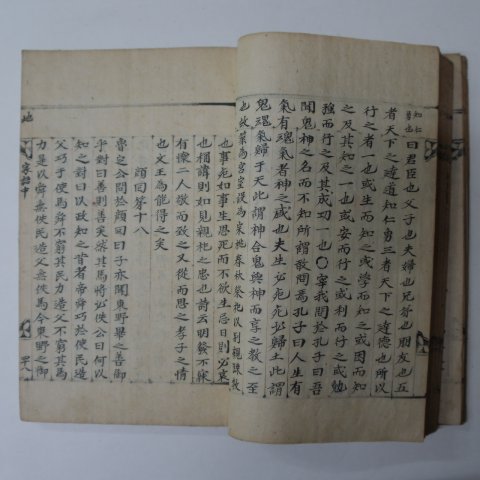 知仁
勇也
曰君臣也父子也夫婦也兄弟也朋友也五
者天下之達道知仁勇三者天下之達德也所以
行之者一也或生而知之或學而知之或困而知
之及其知之一也或安而行之或利而行之或勉
強而行之及其成功一也○宰我問於孔子曰吾
聞鬼神之名而不知所謂敢問焉孔子曰人生有
氣有魂氣者神之盛也夫生必死死必歸土此謂
鬼魂氣歸于天此謂神合鬼與神而享之教之至
也故築為宮室設為宗祧春秋祭祀以別親疎教
也事死如事生思死而不欲生忌日則必哀
也稱諱則如見親祀之忠也詩云明發不寐
有懷二人敬而致之又從而思之孝子之情
也文王為能得之矣
顔回第十八
魯定公問於顔回曰子亦聞東野畢之善御
乎對曰善則善矣然其馬將必佚公曰何以
知之對曰以政知之昔者帝舜巧於使民造
父巧于使馬舜不窮其民力造父不窮其馬
力是以舜無佚民造父無佚馬今東野之御
地
家語中